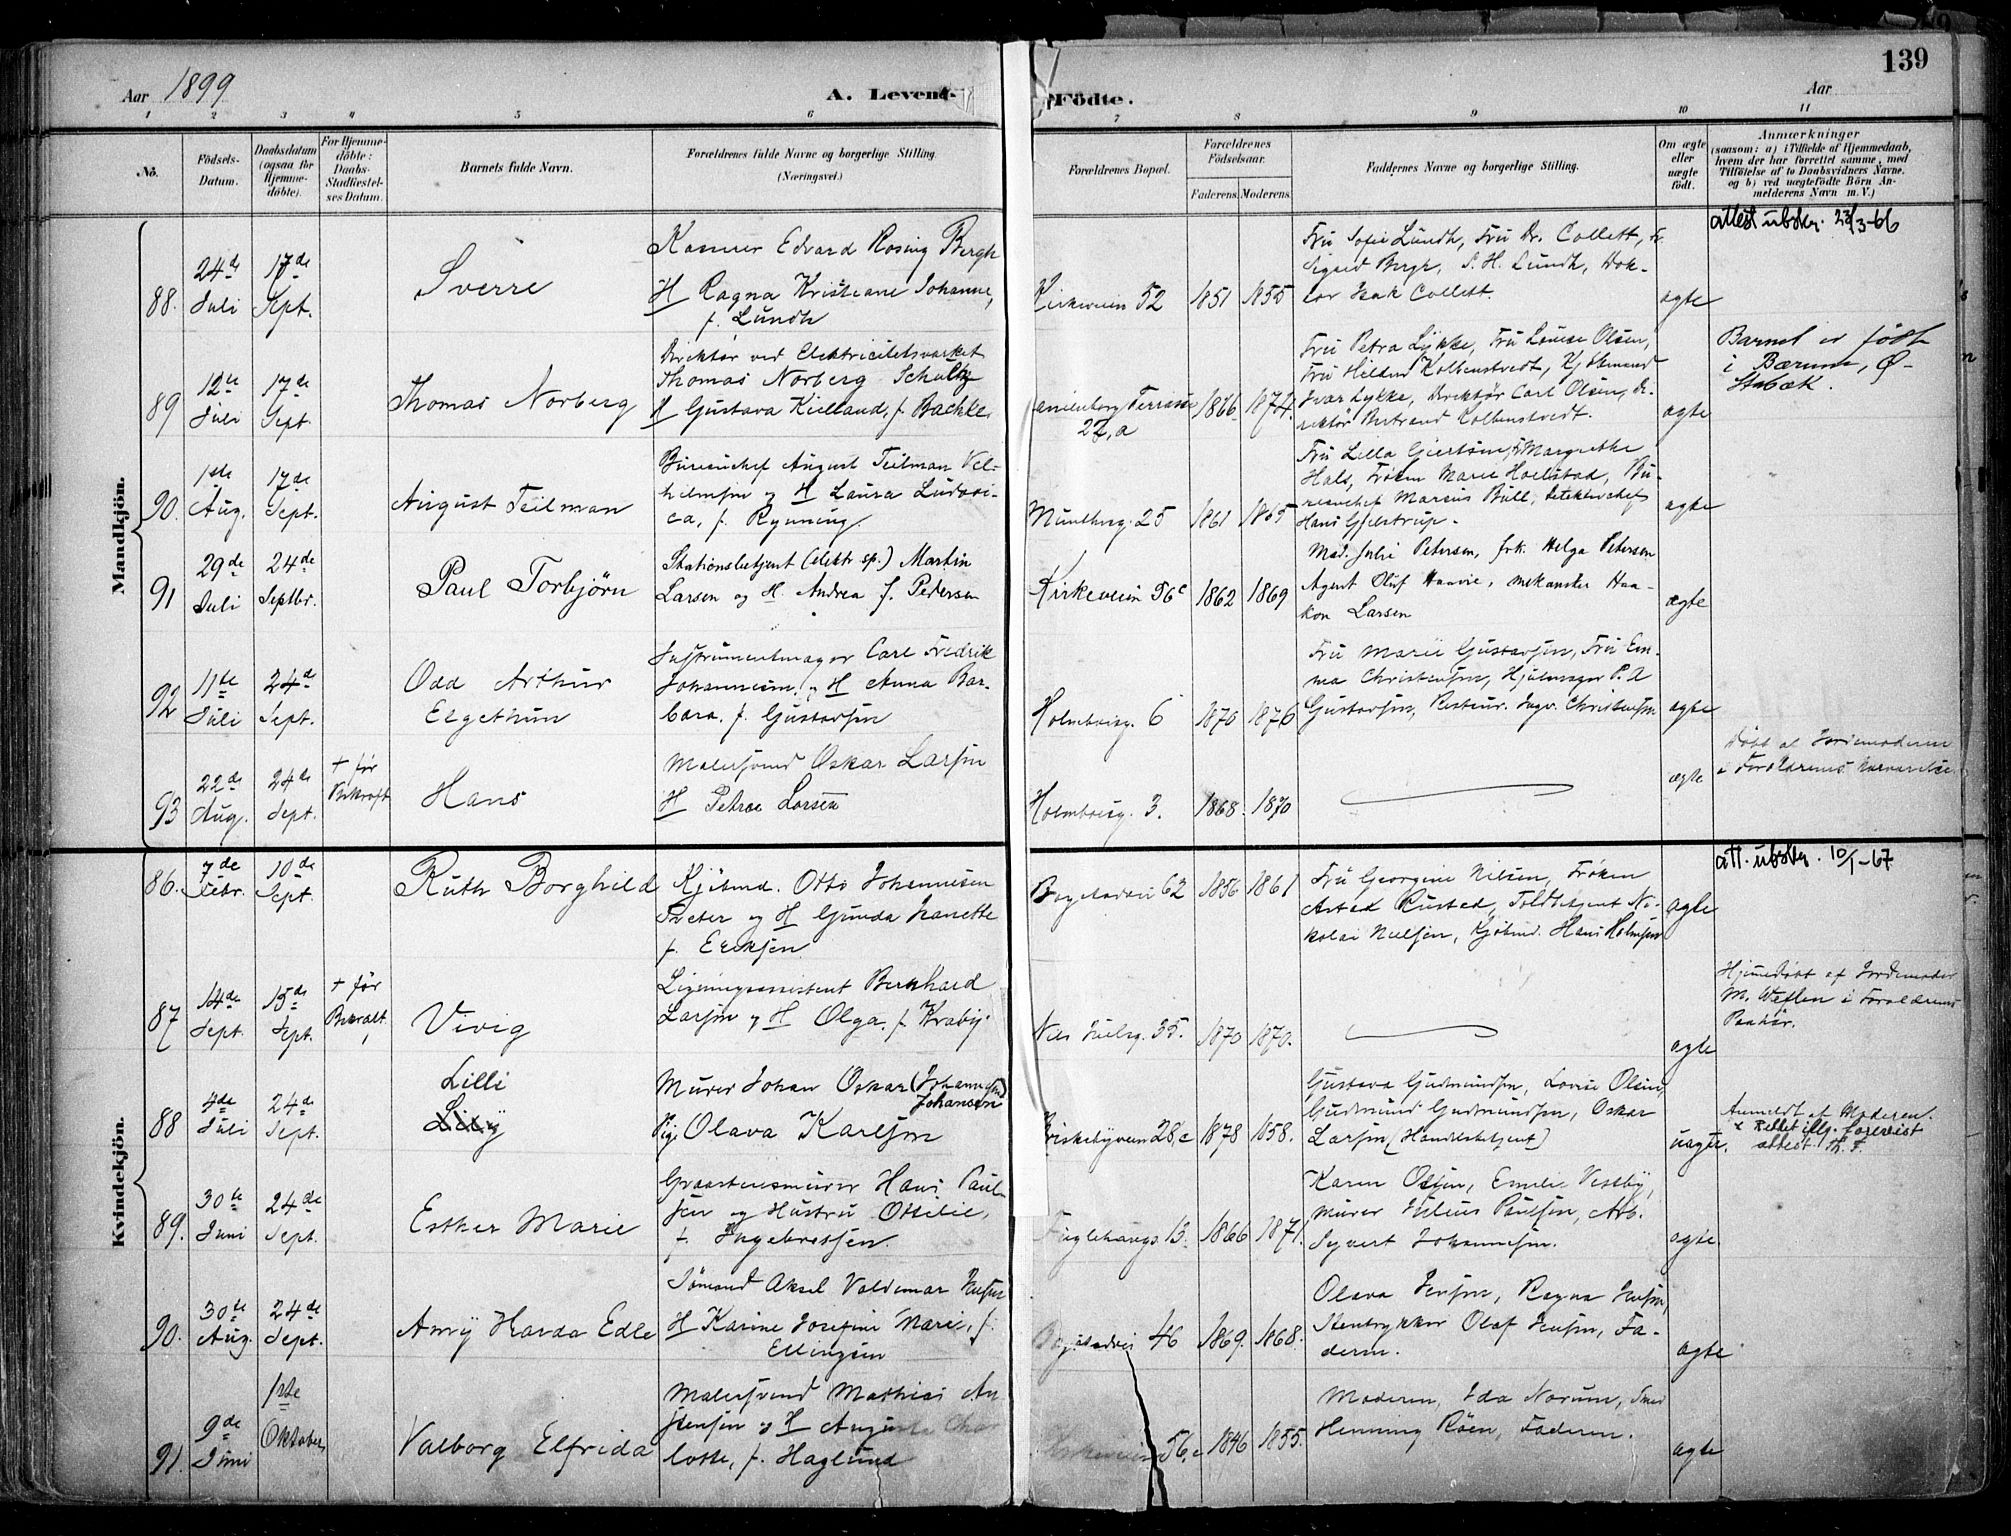 139
Aar 1899
A. Levende
Födte.
Aar
1 2 3 4 5 6 7 8 9 10 11
No.
Födsels-
Datum.
Daabsdatum
(ogsaa for
Hjemme-
döbte).
For Hjemme-
döbte:
Daabs-
Stadfæstel-
ses Datum.
Barnets fulde Navn.
Forældrenes fulde Navne og borgerlige Stilling.
(Næringsvei.)
Forældrenes Bopæl.
Forældrenes
Födselsaar.
Faderens. Moderens.
Faddernes Navne og borgerlige Stilling.
Om ægte
eller
uægte
födt.
Anmærkninger
(saasom: a) i Tilfælde af Hjemmedaab,
hvem der har forrettet samme, med
Tilföielse af to Daabsvidners Navne,
og b) ved uægtefödte Börn An-
melderens Navn m. V.)
Mandkjön.
88.
24de
Juli
17de
Sept.
Sverre
Edvard Rosing Bergh
H Ragna Kristiane Johanne,
f. Lundh
Kirkeveien 52
1851
1855
Fru Sofie Lundh, Fru Dr. Collett, Fr.
Sigrid Bergh, S. H. Lundh, Dok-
tor Isak Collett.
ægte
attest utsten. 23/3-66
89
12te
Juli
17de
Sept.
Thomas Norberg
Direktør ved Elektricitetsverket
Thomas Norberg Schultz
H Gustava Kielland, f. Bachke
Terrasse
22, a
1866
1874.
Fru Petra Lykke, Fru Louise Olsen,
Fru Hildur Kolbenstvedt, Kjøbmand
Ivar Lykke, Direktør Carl Olsen, Di-
rektør Bertrand Kolbenstvedt.
ægte
Barnet er født
i Bærum, Ø-
Stabæk.
90.
1ste
Aug.
17de
Sept.
August Teilman
Bureauchef August Teilman Vil-
helmsen og H Laura Ludovi-
ca, f. Rynning.
Munthesg. 25
1861
1865
Fru Lilla Giertsen, Fr. Margrethe
Hals, Frøken Marie Hoelstad, Bu-
reauchef Marius Bull, Detektivchef
Hans Gjelstrup.
ægte
91
29de
Juli
24de
Septbr.
Paul Torbjörn
Stationsbetjent (elektr. sp.) Martin
Larsen og H. Andrea f. Pedersen
Kirkeveien 56c
1862
1869
Mad. Julie Petersen, frk. Helga Petersen
Agent Oluf Haavie, mekanster Haa-
kon Larsen
ægte
92
11te
Juli
24de
Sept.
Odd Arthur
Elgethun
Instrumentmager Carl Fredrik
Johannessen, og H Anna Bar-
bara. f. Gustavsen
Holmboesg. 6
1870
1876
Fru Marie Gustavsen, Fru Em-
ma Christensen, Hjulmager P. A
Gustavsen, Ingv. Christensen
ægte
93
22de
Aug.
24de
Sept.
+ før
Bekræft.
Hans
Malersvend Oskar Larsen
H Petrea Larsen
Holmboesg. 3.
1868.
1870
ægte
Døbt af Jordemoderen
i Forældrenes Nærværelse.
Kvindekjön.
86.
7de
Febr.
10de
Sept.
Ruth Borghild
Kjöbmd. Otto Johannesen
Sæter og H Gunda Jeanette
f. Eriksen
Bogstadvei 62
1856
1861
Fru Georgine Nilsen, Frøken
Astrid Rustad, Toldbetjent Ni-
kolai Nielsen, Kjöbmd. Hans Holmsen
ægte
att. utsten. 10/1-67
87
14de
Sept.
15de
Sept.
+ før
Bekræft.
Vivig
Ligningsassistent Bernhard
Larsen og H Olga, f. Kraby.
Niels Juelsg. 35.
1870
1870.
ægte
Hjemmedøbt af Jordemoder
M. Weflen i Forældrenes
Paahør.
88
4de
Juli
24de
Sept.
Lilli
Lilly
Murer Johan Oskar (Johannesen)
Johansen
Pige Olava Karlsen
Briskebyveien 28, c
1878
1858.
Gustava Gudmundsen, Lovise Olsen,
Gudmund Gudmundsen, Oskar
Larsen (Handelsbetjent)
uægte.
Anmeldt af Moderen.
x Rettet iflg. forevist
attest. Th. F.
89.
30te
Juni
24de
Sept.
Esther Marie
Graastensmurer Hans Paul-
sen og Hustru Ottilie,
f. Ingebretsen.
Fuglehaugs. 13.
1866
1871.
Karen Olsen, Emilie Vestby,
Murer Julius Paulsen, Arb.
Syvert Johannesen.
ægte.
90.
30te
Aug.
24de
Sept.
Amy Harda Edle
Sømand Aksel Valdemar Jensen
H Karine Josefine Marie, f.
Ellingsen
Bogstadvei 46
1869.
1868.
Olava Jensen, Ragna Jensen,
Stentrykker Olaf Jensen, Fa-
deren.
ægte
91.
9de
Juni
1ste
Oktober
Valborg Elfrida
Malersvend Mathias An-
tensen og H Augusta Char
lotte, f. Haglund
Kirkeveien 56, c
1846
1855.
Moderen, Ida Norum, Smed
Henning Röen, Faderen.
ægte